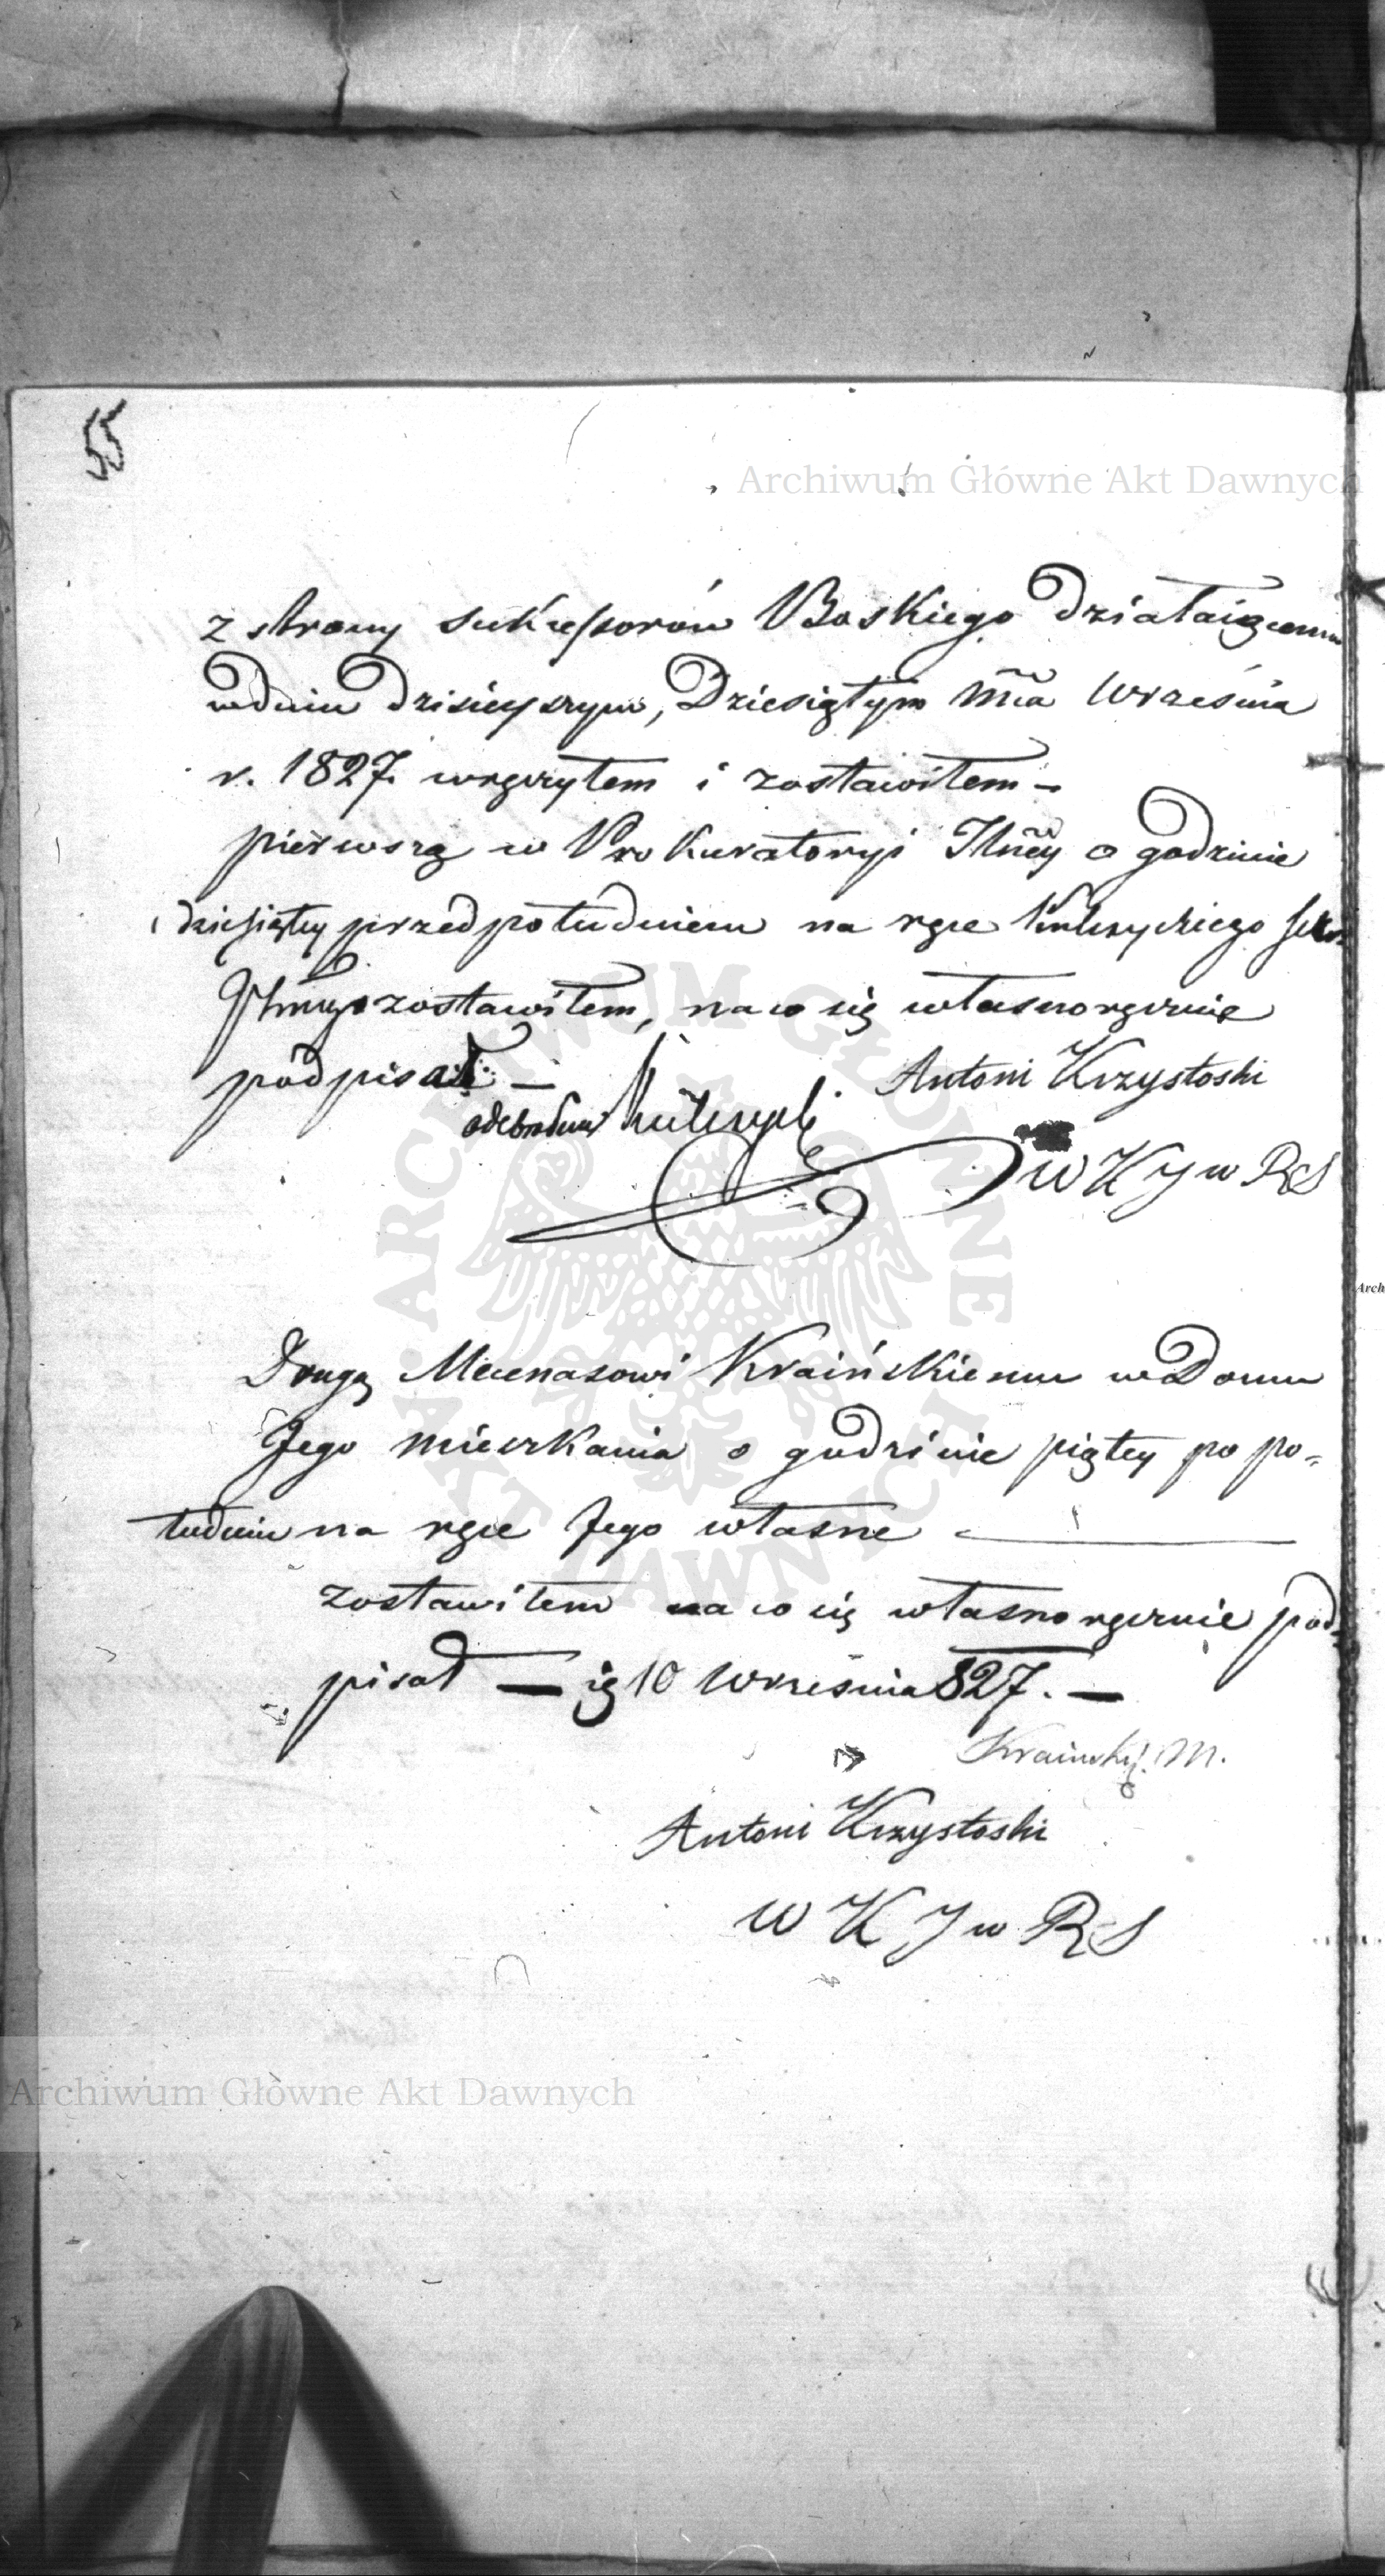 55
Archiwum Główne Akt Dawnych
z strony sukcessorów Boskiego działaiącemu
w dniu dzisieyszym, Dziesiątym Mca Września
r. 1827 wręczyłem i zostawiłem –
pierwszą w Prokuratoryi o godzinie
dziesiątey przed południem na ręce
zostawiłem, na co się własnoręcznie
podpisał –
Antoni Krzystoski
odebrałem
W K J w R S
Drugą Mecenasowi Kraińskiemu w Domu
Jego mieszkania o godzinie piątey po po=
łudniu na ręce Jego własne
zostawiłem na co się własnoręcznie pod=
pisał — ię 10 Września 827. —
Kraiński M.
Antoni Krzystoski
W K J w R S
Archiwum Główne Akt Dawnych
ARCHIWUM GŁÓWNE AKT DAWNYCH
Arch